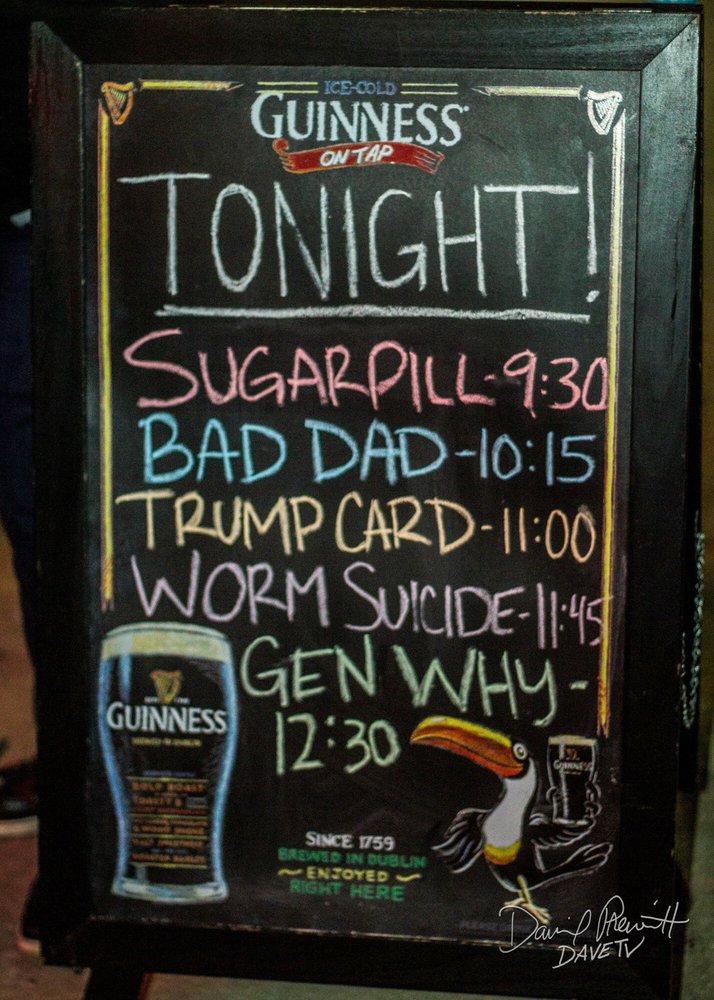 ICE-COLD
GUINNESS
ON TAP
TONIGHT!
SUGARPILL-9:30
BAD DAD-10:15
TRUMP CARD-11:00
WORM SUICIDE-11:45
GEN WHY-
12:30
GUINNESS
GUINNESS
SINCE 1759
BREWED IN DUBLIN
ENJOYED
RIGHT HERE
DAVETV